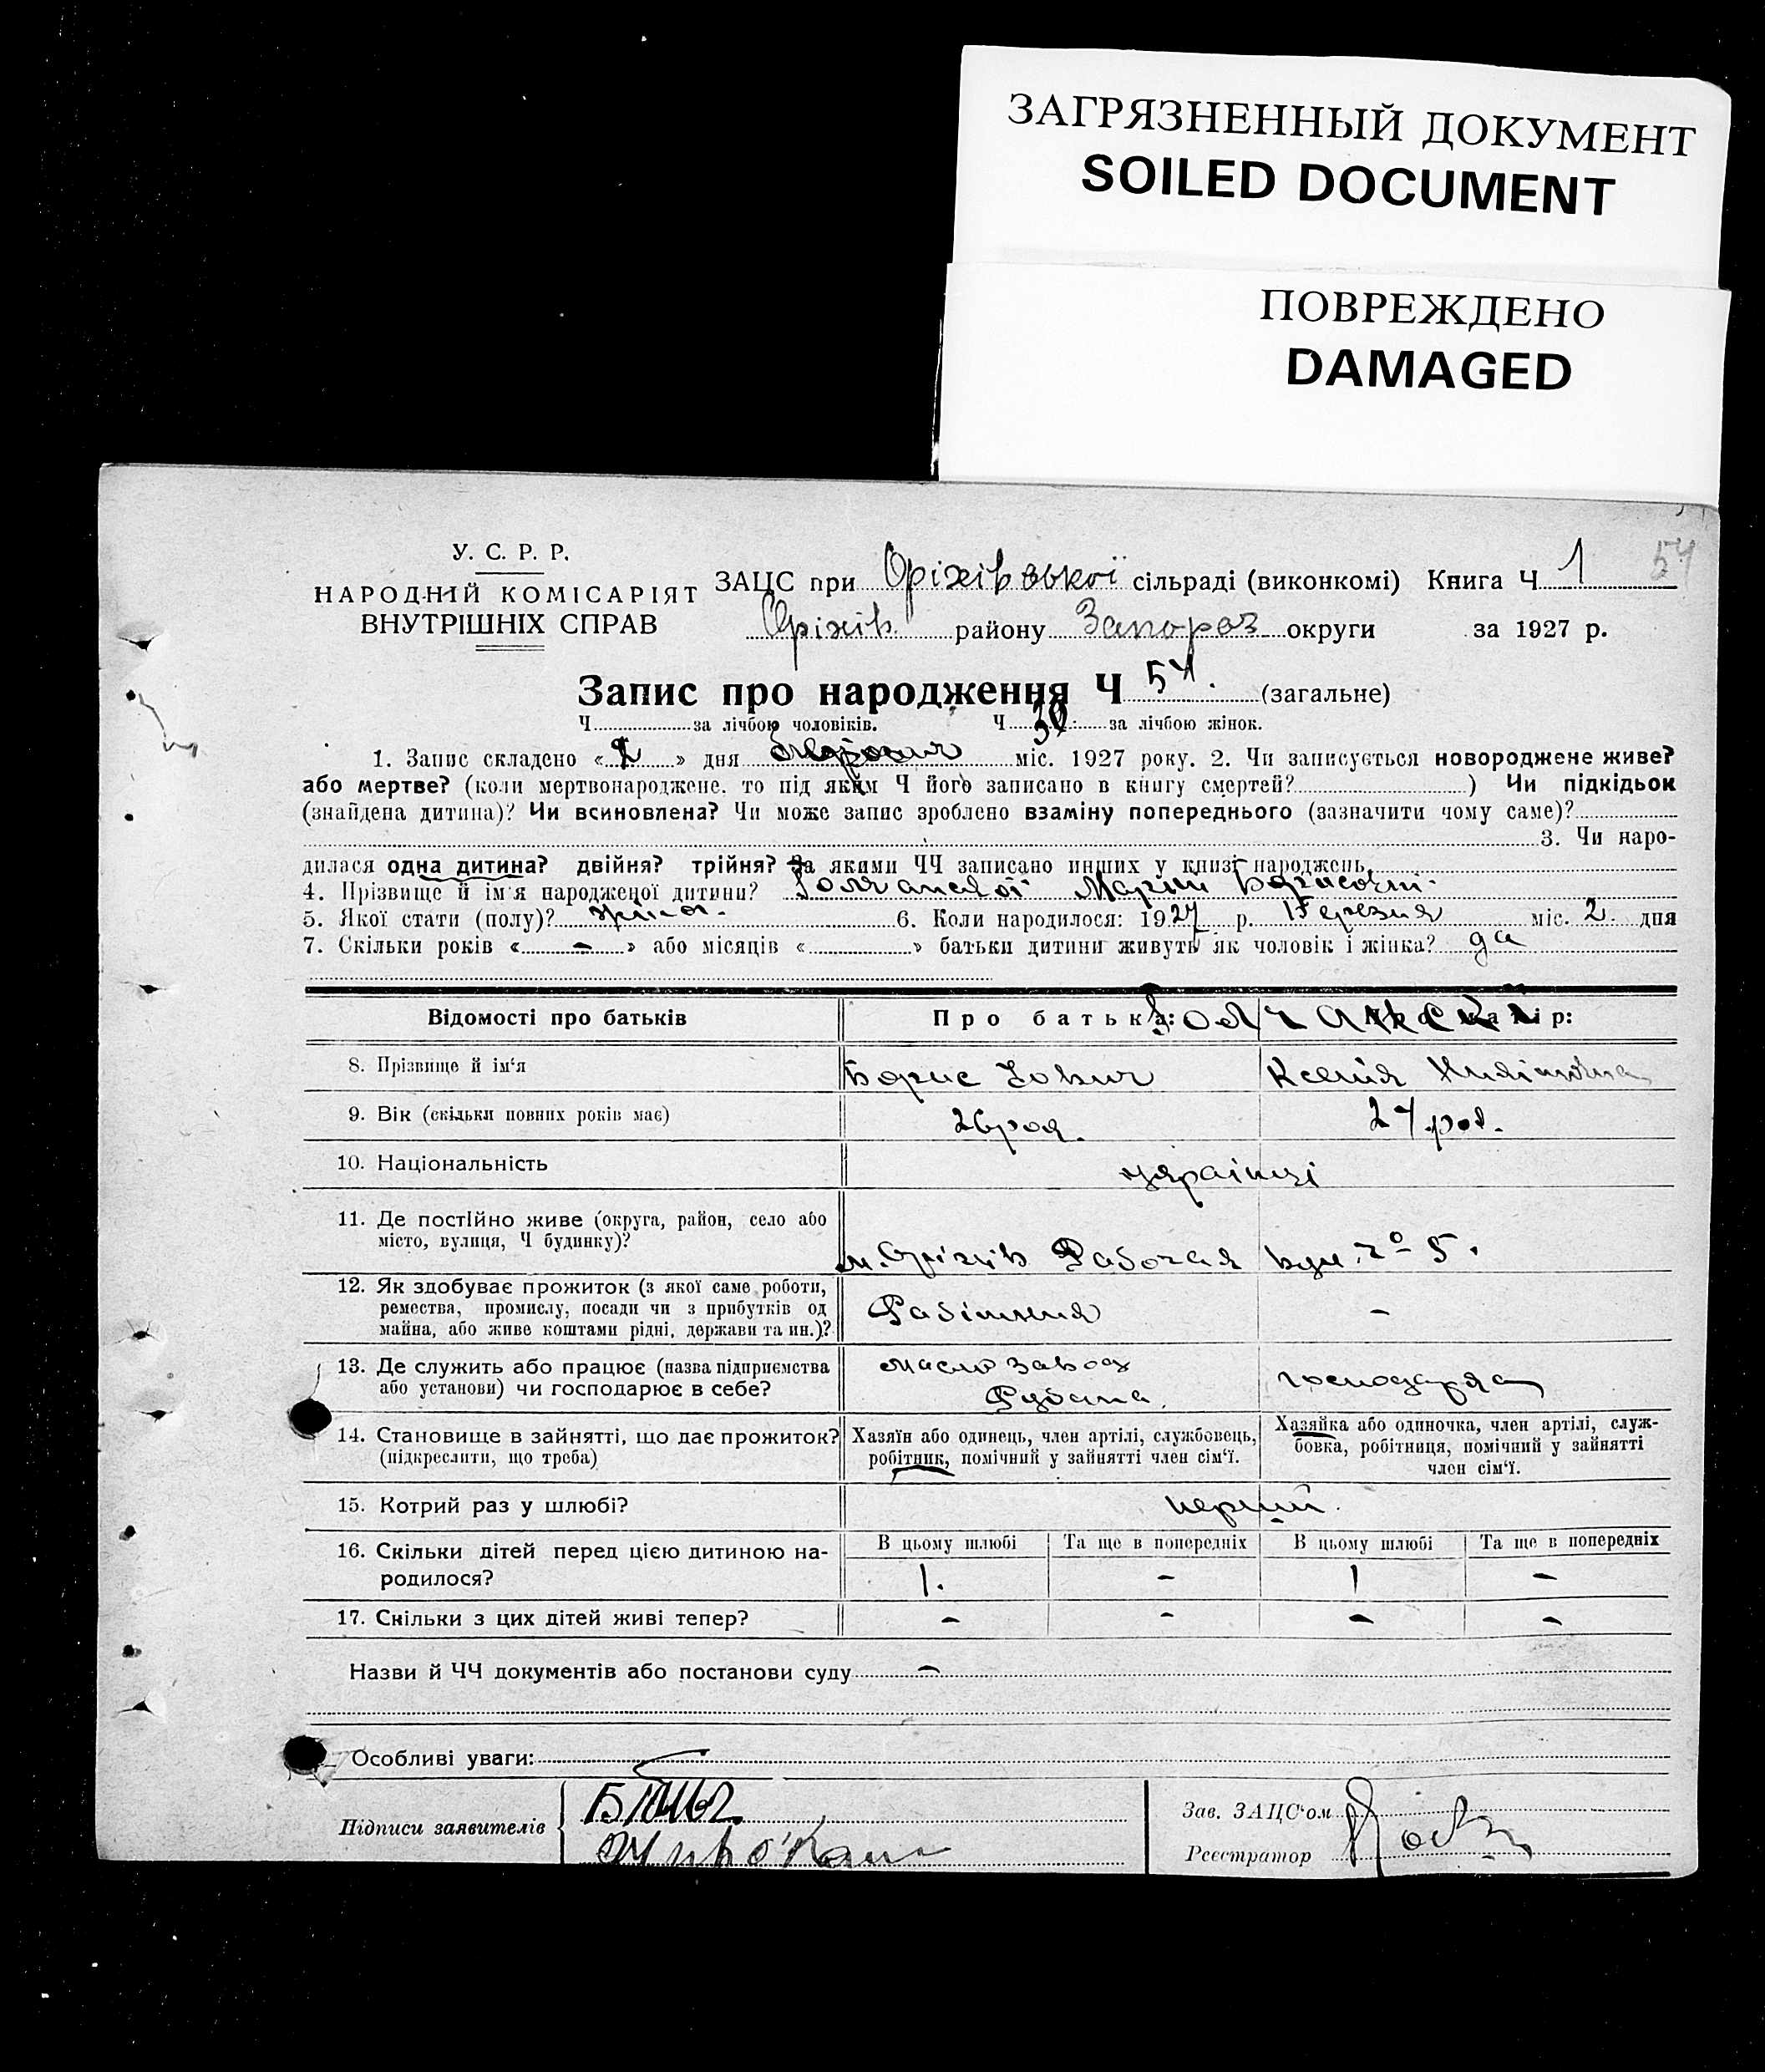 ЗАГРЯЗНЕННЫЙ ДОКУМЕНТ
SOILED DOCUMENT
ПОВРЕЖДЕНО
DAMAGED
У. С. Р. Р.
НАРОДНІЙ КОМІСАРІЯТ
ВНУТРІШНІХ СПРАВ
ЗАЦС при Оріхівської сільраді (виконкомі) Книга Ч 1
Оріхів району Запороз округи за 1927 р.
Запис про народження Ч 54. (загальне)
Ч за лічбою чоловіків. Ч 30 за лічбою жінок.
1. Запис складено « » дня міс. 1927 року. 2. Чи записується новороджене живе?
або мертве? (коли мертвонароджене, то під яким Ч його записано в книгу смертей? ) Чи підкідьок
(знайдена дитина)? Чи всиновлена? Чи може запис зроблено взаміну попереднього (зазначити чому саме)?
3. Чи наро-
дилася одна дитина? двійня? трійня? За якими ЧЧ записано инших у книзі народжень
4. Прізвище й ім'я народженої дитини?
5. Якої стати (полу)? жіноч. 6. Коли народилося: 1927 р. Березня міс. 2 дня
7. Скільки років « – » або місяців « » батьки дитини живуть як чоловік і жінка? да
Відомості про батьків
Про батька:
8. Прізвище й ім'я
Борис Ксенія
9. Вік (скільки повних років має)
26 рок. 24 рок.
10. Національність
українці
11. Де постійно живе (округа, район, село або
місто, вулиця, Ч будинку)?
м. Оріхів Рабочая вул. № 5.
12. Як здобуває прожиток (з якої саме роботи,
ремества, промислу, посади чи з прибутків од
майна, або живе коштами рідні, держави та ин.)?
Рабітник –
13. Де служить або працює (назва підприємства
або установи) чи господарює в себе?
масло завод
господарка
14. Становище в зайнятті, що дає прожиток?
(підкреслити, що треба)
Хазяїн або одинець, член артілі, службовець,
робітник, помічний у зайнятті член сім'ї.
Хазяйка або одиночка, член артілі, служ-
бовка, робітниця, помічний у зайнятті
член сім'ї.
15. Котрий раз у шлюбі?
перший.
16. Скільки дітей перед цією дитиною на-
родилося?
В цьому шлюбі Та ще в попередніх В цьому шлюбі Та ще в попередніх
1. – 1 –
17. Скільки з цих дітей живі тепер?
– – – –
Назви й ЧЧ документів або постанови суду –
Особливі уваги:
Підписи заявителів
Зав. ЗАЦС'ом
Реєстратор